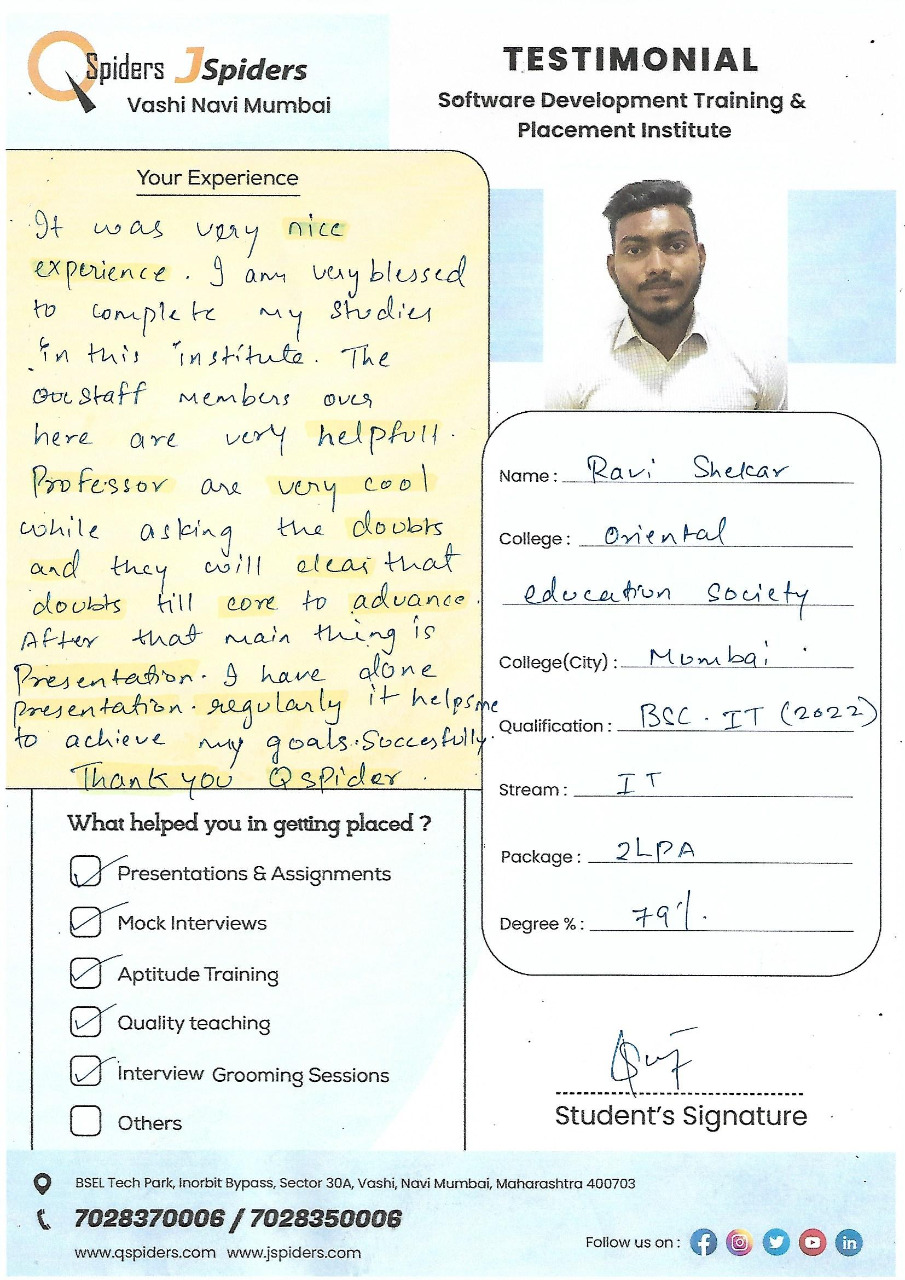 QSpiders JSpiders
Vashi Navi Mumbai
TESTIMONIAL
Software Development Training &
Placement Institute
Your Experience
It was very nice
experience. I am very blessed
to complete my studies
in this institute. The
staff members over
here are very helpfull.
Professor are very cool
while asking the doubts
and they will clear that
doubts till core to advance.
After that main thing is
Presentation. I have done
presentation. regularly it helps me
to achieve my goals. Succesfully.
Thank you Qspider.
What helped you in getting placed ?
Presentations & Assignments
Mock Interviews
Aptitude Training
Quality teaching
Interview Grooming Sessions
Others
Name : Ravi Shekar
College : Oriental
education society
College(City) : Mumbai
Qualification : BSC. IT (2022)
Stream : IT
Package : 2LPA
Degree % : 79%.
Student's Signature
BSEL Tech Park, Inorbit Bypass, Sector 30A, Vashi, Navi Mumbai, Maharashtra 400703
7028370006 / 7028350006
www.qspiders.com www.jspiders.com
Follow us on :